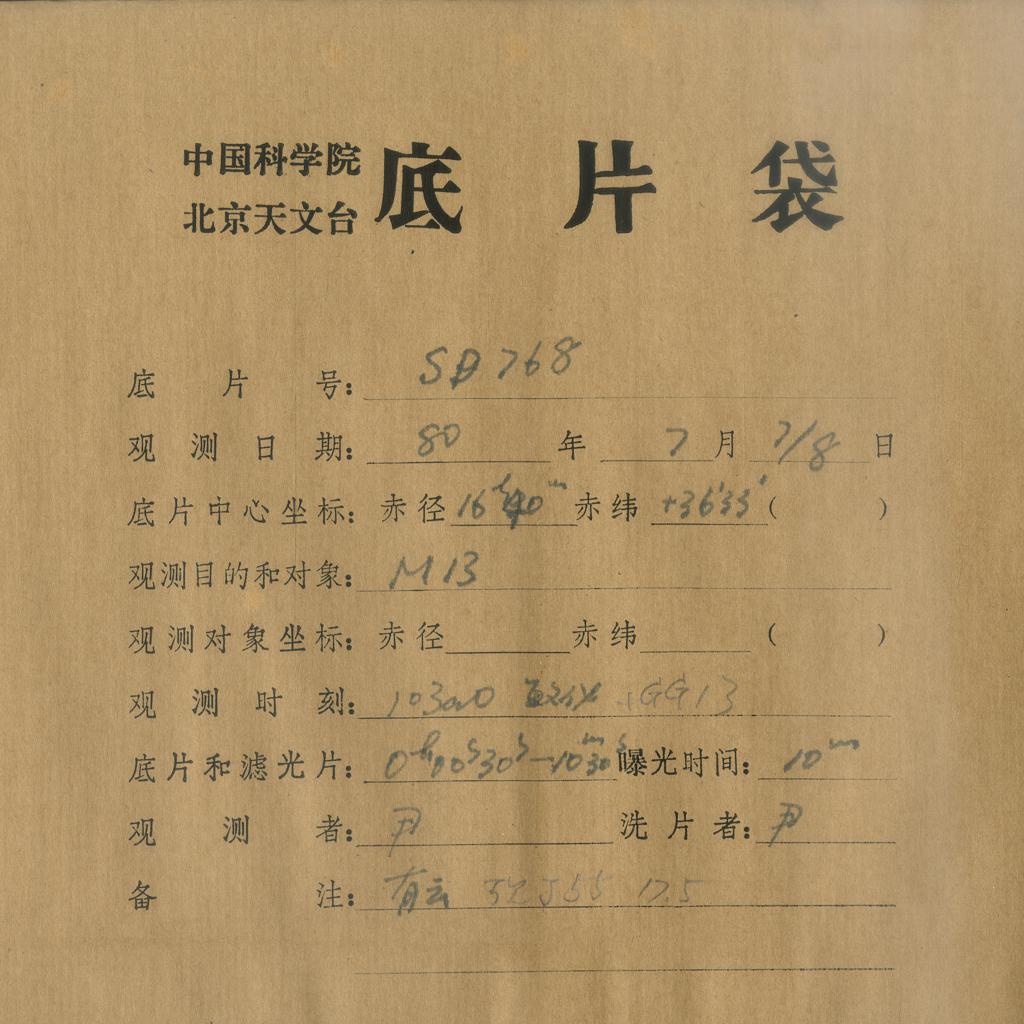 中国科学院
北京天文台
底片袋
底片号: SB768
观测日期: 80年 7月 7/8日
底片中心坐标: 赤径 16ʰ40ᵐ 赤纬 +36°33′ ( )
观测目的和对象: M13
观测对象坐标: 赤径 赤纬 ( )
观测时刻: 103aO +GG13
底片和滤光片: 曝光时间: 10ᵐ
观测者: 尹 洗片者: 尹
备注: 有云 55 17.5